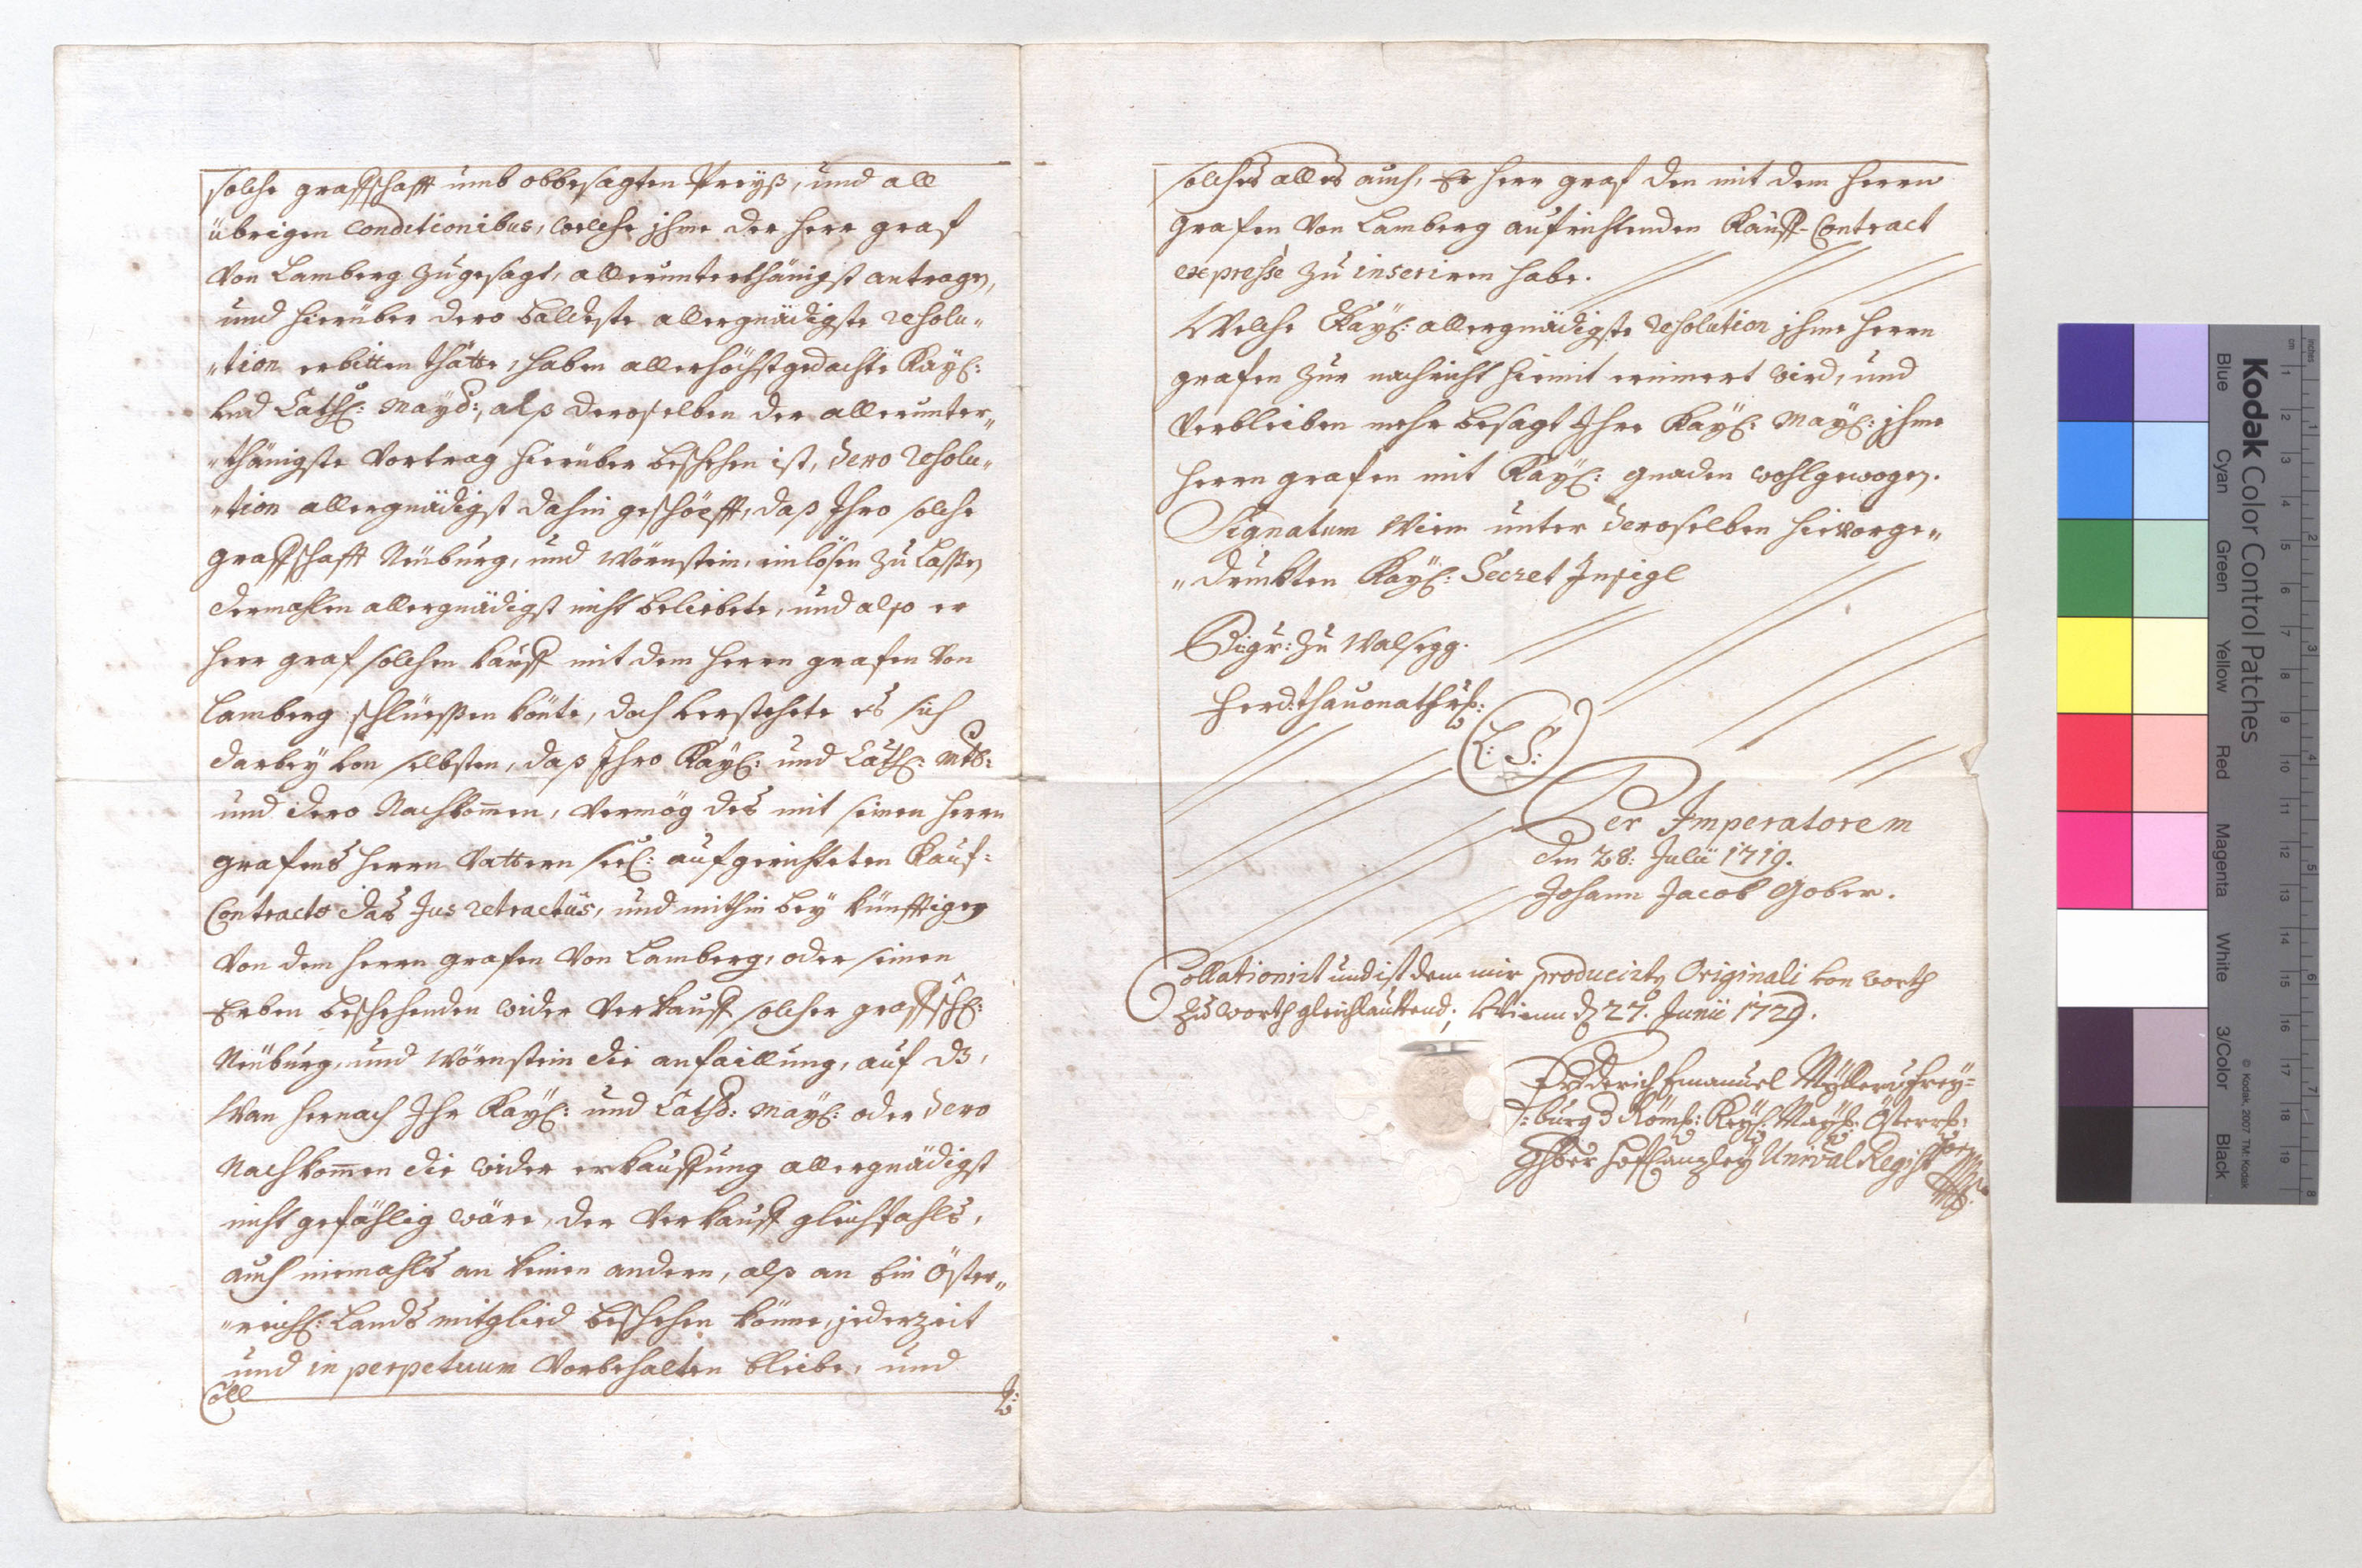 solche graffschafft umb obbesagten Preyß, und all
übrigen conditionibus, welche ihme der herr graf
von Lamberg zugesagt, allerunterthänigst antragen,
und hierüber dero baldeste allergnädigste resolu„
„tion erbitten thätte, haben allerhöchstgedachte Kayß:
und Cathß: Mayd:, alß deroselben der allerunter„
„thänigste Vortrag hierüber beschehen ist, dero resolu„
„tion allergnädigst dahin geschöpfft, daß Ihro solche
graffschafft Neüburg, und Wörnstein, einlösen zu lassen
dermahlen allergnädigst nicht beliebete, und also er
herr graf solchen kauff mit dem herrn grafen von
Lamberg schlüessen könte, doch verstehete es sich
darbey von selbsten, daß Ihro Kayß: und Cathß: Mtt:
und dero Nachkommen, vermög des mit seinen herrn
grafens herrn Vattern seel: aufgerichteten Kauf=
Contracto das Jus retractüs, und mithin bey künfftigen
von dem herrn grafen von Lamberg, oder seinen
Erben beschehenden wider verkauff solcher graffschß:
Neüburg, und Wörnstein die anfaillung, auf das,
Wan hernach Ihr Kayß: und Cathß: Mayß: oder dero
Nachkommen die wider erkauffung allergnädigst
nicht gefählig wäre, der verkauff gleichfahls,
auch niemahls an keinen andern, alß an ein Öster„
„reichß: Lands mitglied beschehen könne, jederzeit
und in perpetuum vorbehalten bleibe, und
Coll
solches alles auch, Er herr graf den mit dem herrn
grafen von Lamberg aufrichtenden Kauff-Contract
expresse zu inseriren habe.
Welche Kayß: allergnädigste resolution ihme herrn
grafen zur nachricht hiemit erinnert wird, und
verbleiben mehr besagt Ihre Kayß: Mayß: ihme
herrn grafen mit Kayß: gnaden wohlgewogen.
Signatum Wien unter deroselben hievorge„
„druckten Kayß: Secret Insigl
zu Walsegg.
Ferd:
L: S:
Per Imperatorem
den 28: Julii 1719.
Johann Jacob Gober.
Collationirt und ist dem mir producirten Originali von worth
zu worth gleichlauttend; Wienn den 27. Junii 1729.
Friderich Emanuel Müller v Frey=
=burg Röm: Kayß: Mayß: Österr:
Hof Canzley Regist